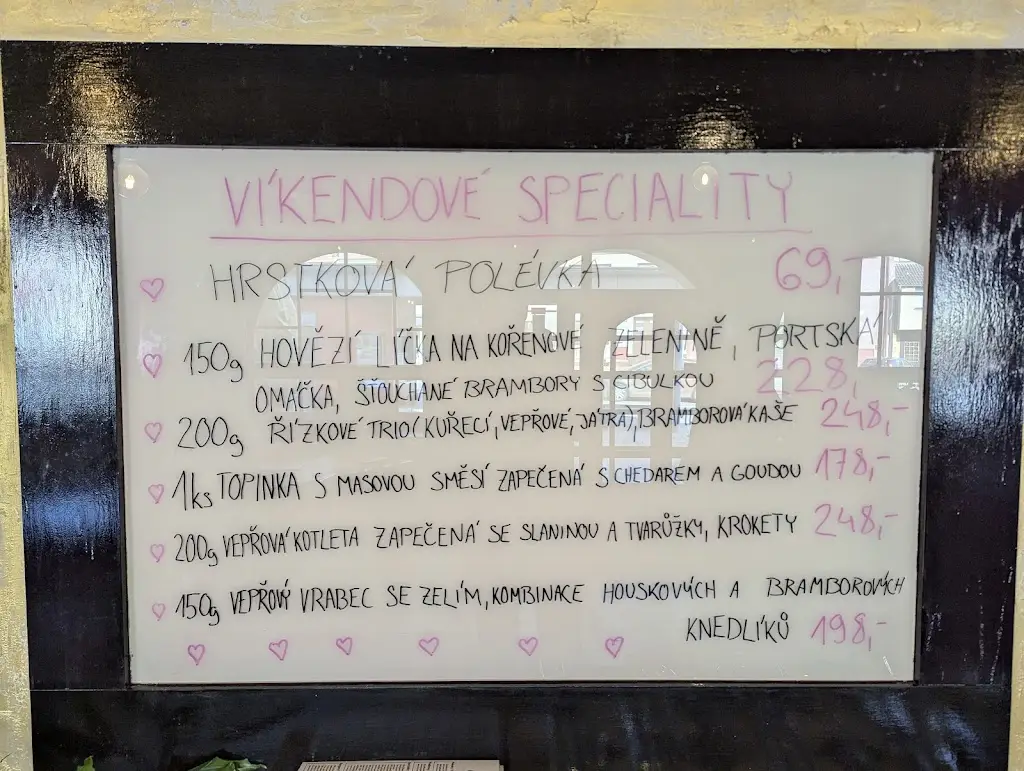 VÍKENDOVÉ SPECIALITY
HRSTKOVÁ POLÉVKA 69,-
150g HOVĚZÍ LÍČKA NA KOŘENOVÉ ZELENINĚ, PORTSKÁ
OMÁČKA, ŠŤOUCHANÉ BRAMBORY S CIBULKOU 228,
200g ŘÍZKOVÉ TRIO (KUŘECÍ, VEPŘOVÉ, JÁTRA), BRAMBOROVÁ KAŠE 248,-
1ks TOPINKA S MASOVOU SMĚSÍ ZAPEČENÁ S CHEDAREM A GOUDOU 178,-
200g VEPŘOVÁ KOTLETA ZAPEČENÁ SE SLANINOU A TVARŮŽKY, KROKETY 248,-
150g VEPŘOVÝ VRABEC SE ZELÍM, KOMBINACE HOUSKOVÝCH A BRAMBOROVÝCH
KNEDLÍKŮ 198,-